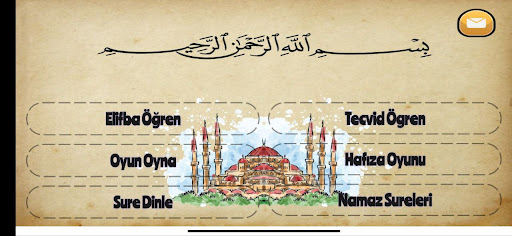 بِسْمِ اللَّهِ الرَّحْمَٰنِ الرَّحِيمِ
Elifba Öğren
Tecvid Ögren
Oyun Oyna
Hafıza Oyunu
Sure Dinle
Namaz Sureleri